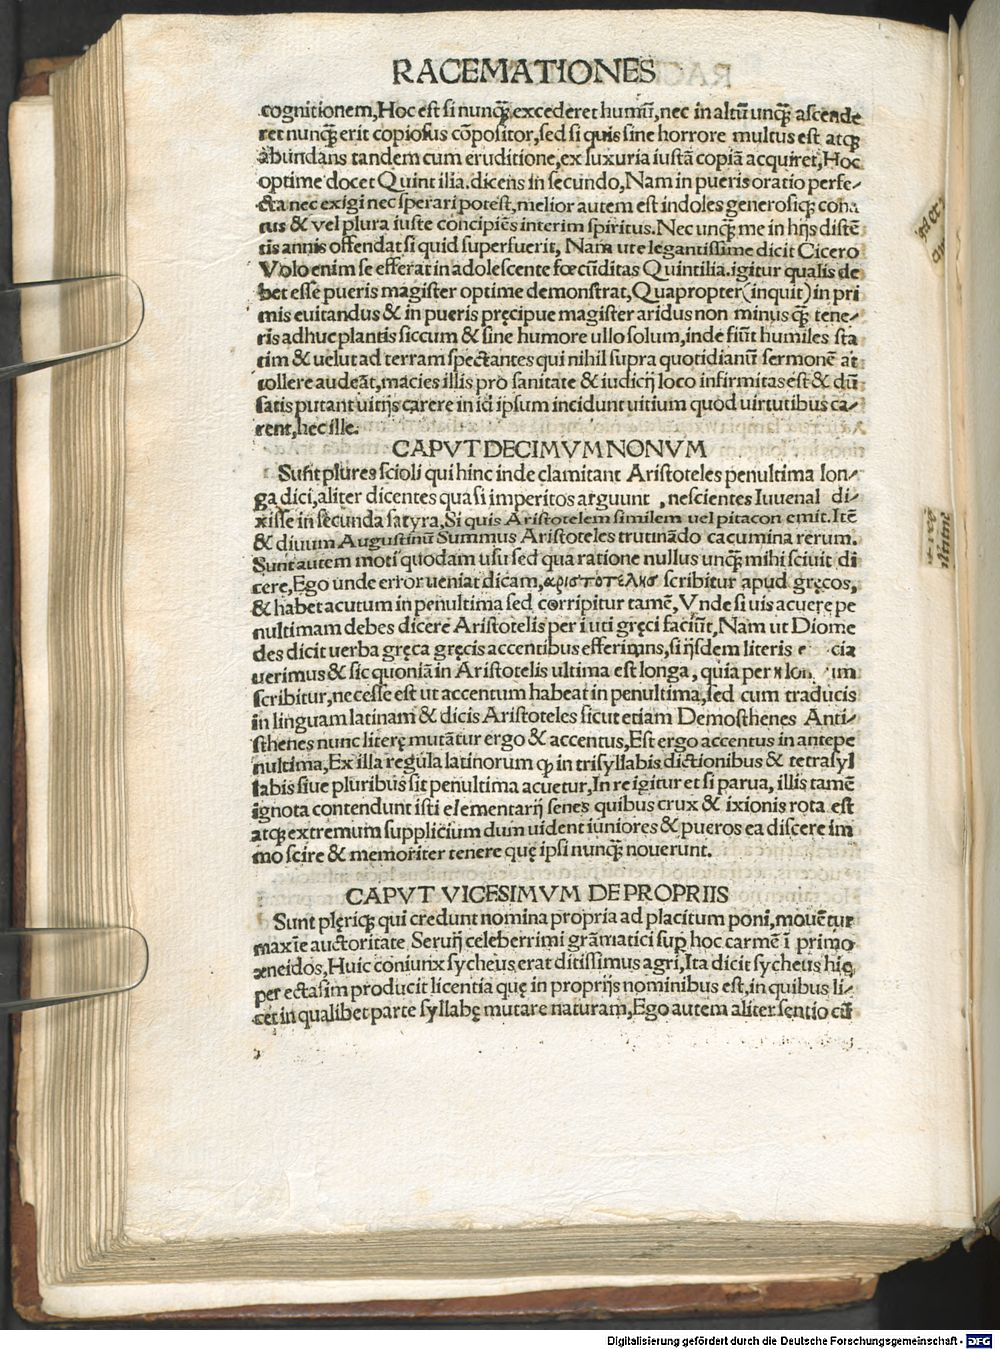 RACEMATIONES
cognitionem,Hoc est si nunqꝫ̃ excederet humũ, nec in altũ unqꝫ̃ ascende
ret nunqꝫ̃ erit copiosus cõpositor,sed si quis sine horrore multus est atqꝫ
abundans tandem cum eruditione,ex luxuria iustã copiã acquiret,Hoc
optime docet Quintilia.dicens in secundo,Nam in pueris oratio perfe⸗
cta nec exigi nec sperari potest,melior autem est indoles generosiqꝫ cona
tus & vel plura iuste concipiẽs interim spiritus.Nec unqꝫ̃ me in hijs discẽ
tis annis offendat si quid superfuerit, Nam ut elegantissime dicit Cicero
Volo enim se efferat in adolescente fœcũditas Quintilia.igitur qualis de
bet esse pueris magister optime demonstrat,Quapropter(inquit)in pri
mis euitandus & in pueris pręcipue magister aridus non minus qꝫ̃ tene⸗
ris adhuc plantis siccum & sine humore ullo solum,inde fiũt humiles sta
tim & uelut ad terram spectantes qui nihil supra quotidianũ sermonẽ at
tollere audeãt,macies illis pro sanitate & iudicij loco infirmitas est & dũ
satis putant uitijs carere in id ipsum incidunt uitium quod uirtutibus ca⸗
rent,hec ille.
CAPVT DECIMVM NONVM
Sunt plures scioli qui hinc inde clamitant Aristoteles penultima lon⸗
ga dici,aliter dicentes quasi imperitos arguunt ,nescientes Iuuenal di⸗
xisse in secunda satyra,Si quis Aristotelem similem uel pitacon emit.Itẽ
& diuum Augustinũ Summus Aristoteles trutinãdo cacumina rerum.
Sunt autem moti quodam usu sed qua ratione nullus unqꝫ̃ mihi sciuit di
cere,Ego unde error ueniat dicam,αριστοτελης scribitur apud gręcos,
& habet acutum in penultima sed corripitur tamẽ,Vnde si uis acuere pe
nultimam debes dicere Aristotelis per i uti gręci faciũt,Nam ut Diome
des dicit uerba gręca gręcis accentibus efferimus,si ijsdem literis
uerimus & sic quoniã in Aristotelis ultima est longa, quia per η
scribitur,necesse est ut accentum habeat in penultima,sed cum traducis
in linguam latinam & dicis Aristoteles sicut etiam Demosthenes Anti⸗
sthenes nunc literę mutãtur ergo & accentus,Est ergo accentus in antepe
nultima,Ex illa regula latinorum ꝙ in trisyllabis dictionibus & tetrasyl
labis siue pluribus sit penultima acuetur,In re igitur et si parua, illis tamẽ
ignota contendunt isti elementarij senes quibus crux & ixionis rota est
atqꝫ extremum supplicium dum uident iuniores & pueros ea discere im
mo scire & memoriter tenere quę ipsi nunqꝫ̃ nouerunt.
CAPVT VICESIMVM DE PROPRIIS
Sunt plęriqꝫ qui credunt nomina propria ad placitum poni,mouẽtur
maxĩe auctoritate Seruij celeberrimi grãmatici sup hoc carmẽ ĩ primo
æneidos,Huic coniunx sycheus erat ditissimus agri,Ita dicit sycheus hic
per ectasim producit licentia quę in proprijs nominibus est,in quibus li⸗
cet in qualibet parte syllabę mutare naturam,Ego autem aliter sentio cũ
Digitalisierung gefördert durch die Deutsche Forschungsgemeinschaft - DFG